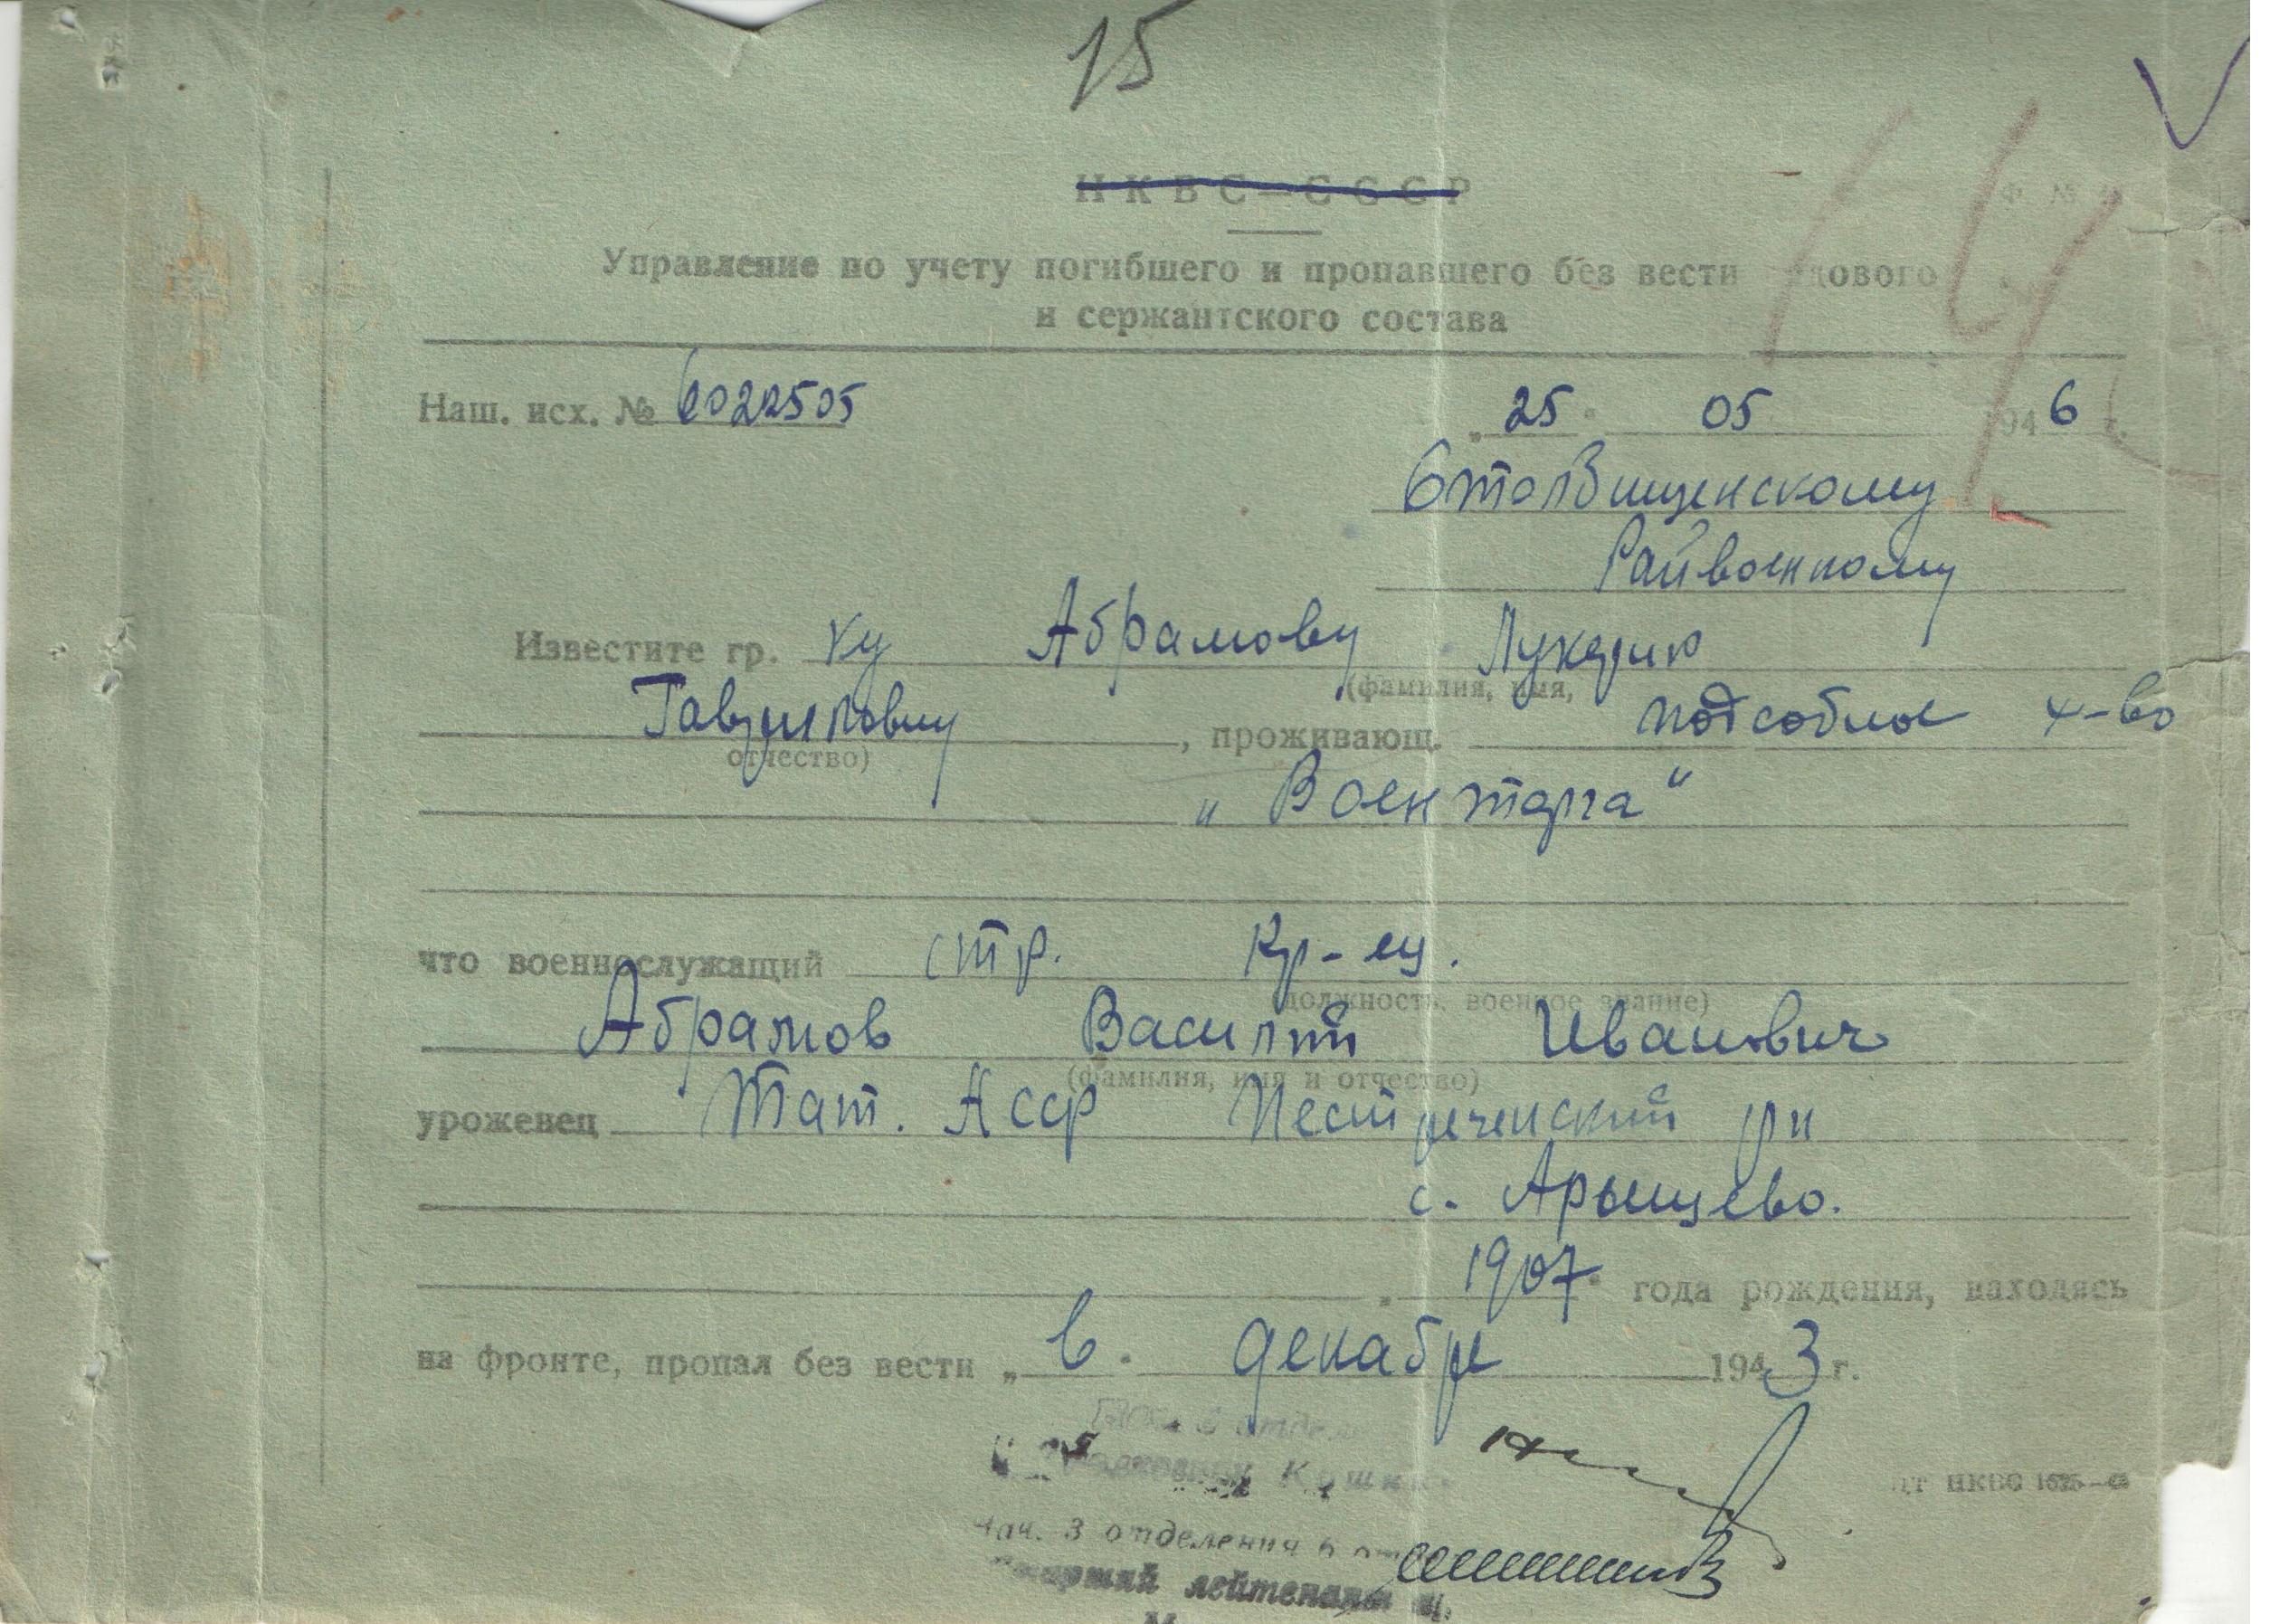 15
НКВС—СССР
Ф №
Управление по учету погибшего и пропавшего без вести рядового
и сержантского состава
14
Наш. исх. № 6022505 „25" 05 1946
Столбищенскому
Райвоенкому
Известите гр. ку Абрамову Лукерию
(фамилия, имя,
Гавриловну, проживающ. подсобное х-во
отчество)
„Военторга"
что военнослужащий стр. кр-ец.
(должность, военное звание)
Абрамов Василий Иванович
(фамилия, имя и отчество)
уроженец Тат. АССР Пестреченский рн
с. Арышево.
„1907" года рождения, находясь
на фронте, пропал без вести „в" декабре 1943 г.
6 отдела
нач. 3 отделения 6
Старший лейтенант
НКВС